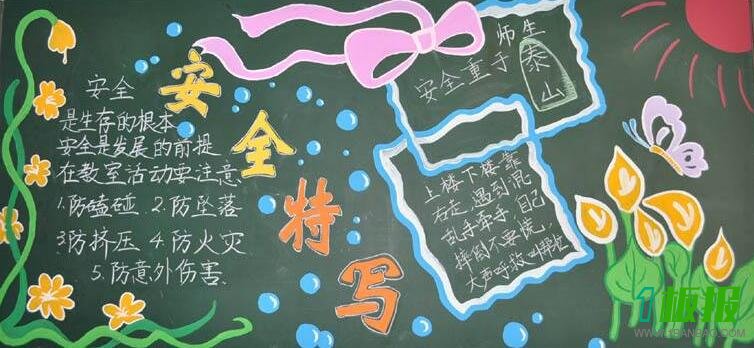 安全
是生存的根本
安全是发展的前提
在教室活动要注意
1.防磕碰 2.防坠落
3.防挤压 4.防火灾
5.防意外伤害.
安全特写
师生
安全重于
泰山
上楼下楼靠
右走,遇到混
乱手牵手,自己
摔倒不要慌,
大声呼救叫
1板报
WWW.1BANBAO.COM